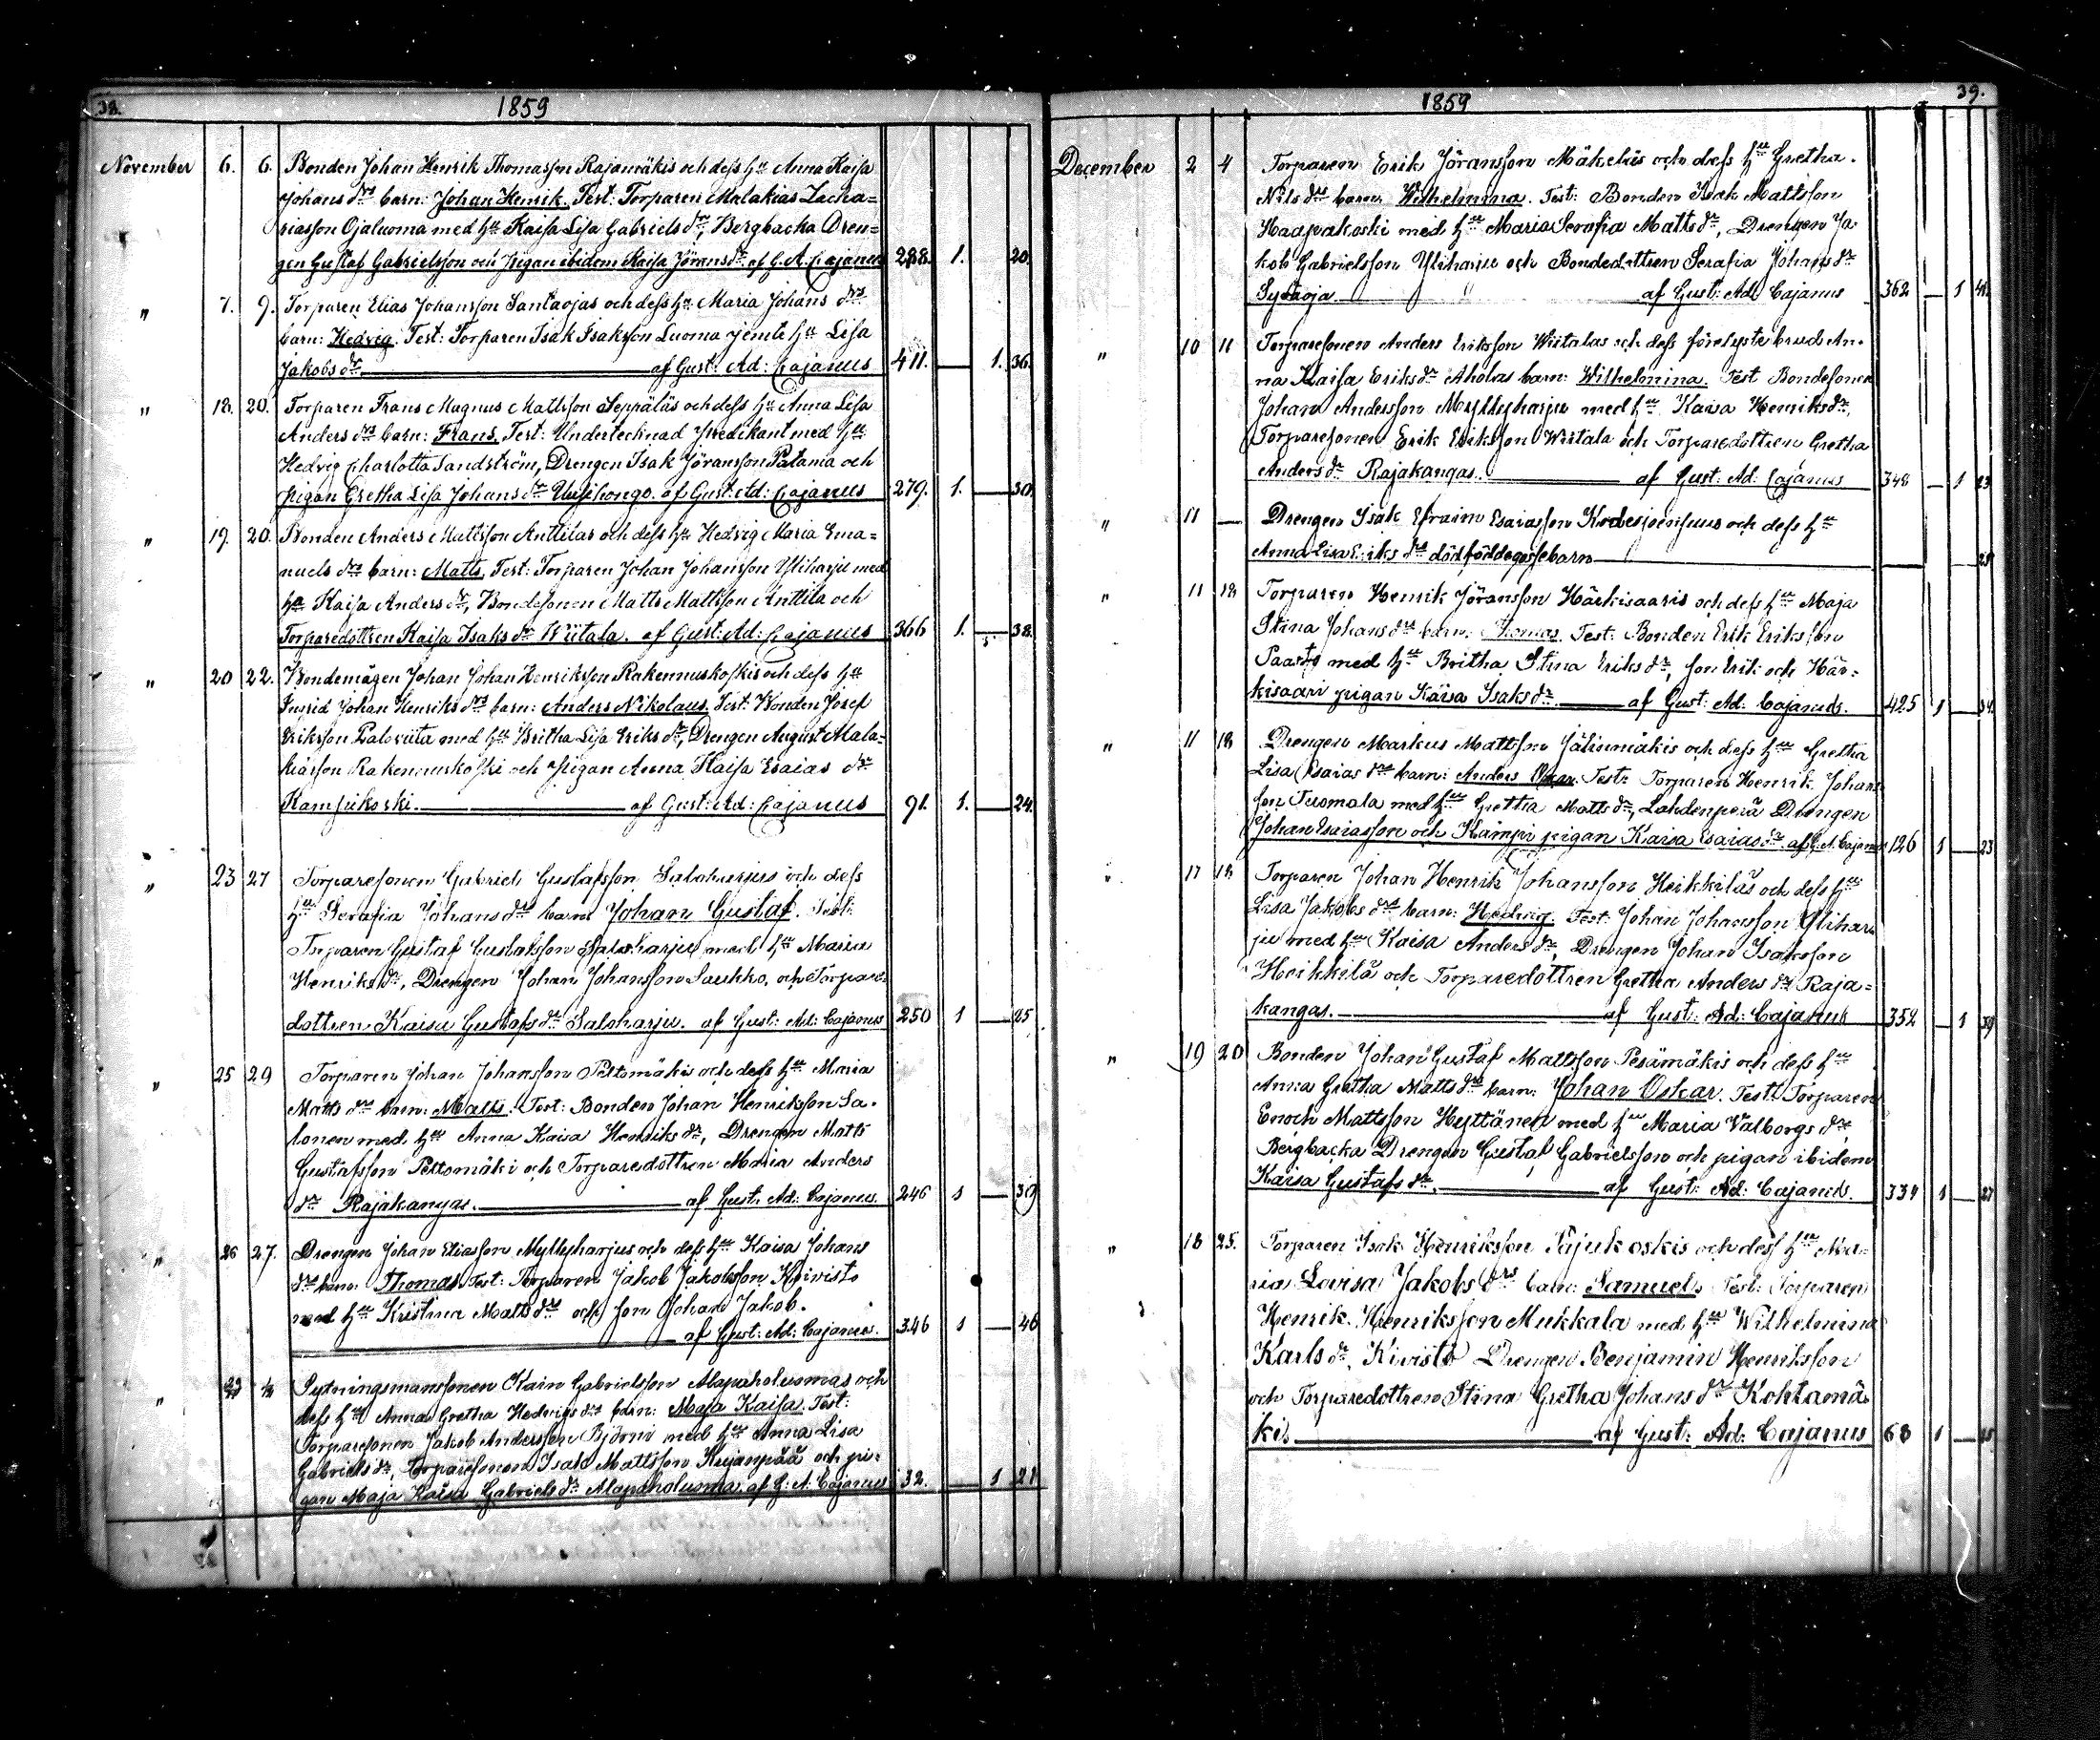 38.
1859
November 6. 6. Bonden Johan Henrik Thomasson Rajamäkis och dess hu Anna Kaisa
Johans drs barn: Johan Henrik. Test: Torparen Malakias Zacha=
riasson Ojaluoma med hu Kaisa Lisa Gabriels dr, Bergbacka Dren=
gen Gustaf Gabrielsson och Pigan ibidem Kaisa Jörans dr. af G. A. Cajanus 288. 1. 20.
" 7. 9. Torparen Elias Johansson Santaojas och dess hu Maria Johans drs
barn: Hedvig. Test: Torparen Isak Isaksson Luoma jemte hu Lisa
Jakobs dr. af Gust: Ad: Cajanus 411. 1. 36.
" 18. 20. Torparen Frans Magnus Mattsson Seppäläs och dess hu Anna Lisa
Anders drs barn: Frans. Test: Undertecknad Predikant med hu
Hedvig Charlotta Sandström, Drengen Isak Jöransson Patama och
pigan Gretha Lisa Johans dr Uusihongo. af Gust: Ad: Cajanus 279. 1. 30.
" 19. 20. Bonden Anders Mattsson Anttilas och dess hu Hedvig Maria Ema=
nuels drs barn: Matts. Test: Torparen Johan Johansson Yliharju med
hu Kaisa Anders dr, Bondesonen Matts Mattsson Anttila och
Torparedottren Kaisa Isaks dr Wiitala. af Gust: Ad: Cajanus 366 1. 38.
" 20 22. Bondemågen Johan Johan Henriksson Rakennuskoskis och dess hu
Ingrid Johan Henriks drs barn: Anders Nikolaus. Test: Bonden Josef
Eriksson Paloviita med hu Britha Lisa Eriks dr, Drengen August Mala=
kiasson Rakennuskoski och Pigan Anna Kaisa Esaias dr
Kamsukoski. af Gust: Ad: Cajanus 91. 1. 24.
" 23 27 Torparesonen Gabriel Gustafsson Saloharjus och dess
hu Serafia Johans drs barn Johan Gustaf. Test:
Torparen Gustaf Gustafsson Saloharju med hu Maria
Henriks dr, Drengen Johan Johansson Saukko, och Torpare-
dottren Kaisa Gustafs dr Saloharju. af Gust: Ad: Cajanus 250 1 25
" 25 29 Torparen Johan Johansson Peltomäkis och dess hu Maria
Matts drs barn: Matts. Test: Bonden Johan Henriksson Sa-
lonen med hu Anna Kaisa Henriks dr, Drengen Matts
Gustafsson Peltomäki och Torparedottren Maria Anders
dr Rajakangas. af Gust: Ad: Cajanus. 246 1 30
" 26 27. Drengen Johan Eliasson Myllyharjus och dess hu Kaisa Johans
drs barn: Thomas. Test: Torparen Jakob Jakobsson Koivisto
med hu Kristina Matts dr och son Johan Jakob.
af Gust: Ad: Cajanus. 346 1 46
" Sytningsmanssonen Kain Gabrielsson Alapaholuomas och
dess hu Anna Gretha Hedvigs drs barn: Maja Kaisa. Test:
Torparesonen Jakob Andersson Björni med hu Anna Lisa
Gabriels dr, Torparesonen Isak Mattsson Kujanpää och pi-
gan Maja Kaisa Gabriels dr Alapaholuoma. af G: A: Cajanus 32. 1 21
39.
1859
December 2 4 Torparen Erik Jöransson Mäkeläs och dess hu Gretha
Nils drs barn Wilhelmina. Test: Bonden Isak Mattsson
Haapakoski med hu Maria Serafia Matts dr, Drengen Ja-
kob Gabrielsson Yliharju och Bondedottren Serafia Johans dr
Sydaoja af Gust: Ad: Cajanus 362 1
" 10 11 Torparesonen Anders Eriksson Wiitalas och dess förelyste brud An-
na Kaisa Eriks dr Aholas barn: Wilhelmina. Test Bondesonen
Johan Andersson Myllyharju med hu Kaisa Henriks dr,
Torparesonen Erik Eriksson Wiitala och Torparedottren Gretha
Anders dr Rajakangas. af Gust: Ad: Cajanus 348 1 23
" 11 Drengen Isak Efraim Esaiasson Kodesjoensuus och dess hu
Anna Lisa Eriks drs dödföddegossebarn
" 11 18 Torparen Henrik Jöransson Härkisaaris och dess hu Maja
Stina Johans drs barn: Thomas. Test: Bonden Erik Eriksson
Paasto med hu Britha Stina Eriks dr, son Erik och Här-
kisaari pigan Kaisa Isaks dr. af Gust: Ad: Cajanus. 425 1
" 11 18 Drengen Markus Mattsson Jälinmäkis och dess hu Gretha
Lisa Esaias drs barn: Anders Oskar. Test: Torparen Henrik Johans-
son Tuomala med hu Gretha Matts dr, Lahdenperä Drengen
Johan Esaiasson och Kämpi pigan Kaisa Esaias dr. af G. A. Cajanus 126 1 23
" 17 18 Torparen Johan Henrik Johansson Heikkiläs och dess hu
Lisa Jakobs drs barn: Hedvig. Test: Johan Johansson Ylihar-
ju med hu Kaisa Anders dr, Drengen Johan Isaksson
Heikkilä och Torparedottren Gretha Anders dr Raja=
kangas. af Gust: Ad: Cajanus 352 1
" 19 20 Bonden Johan Gustaf Mattsson Pesämäkis och dess hu
Anna Gretha Matts drs barn: Johan Oskar. Test: Torparen
Enoch Mattsson Hyttänen med hu Maria Valborgs dr,
Bergbacka Drengen Gustaf Gabrielsson och pigan ibidem
Kaisa Gustafs dr. af Gust: Ad: Cajanus. 334 1 27
" 18 25. Torparen Isak Henriksson Pajukoskis och dess hu Ma-
ria Lovisa Jakobs drs barn: Samuel. Test: Torparen
Henrik Henriksson Mukkala med hu Wilhelmina
Karls dr, Kivistö Drengen Benjamin Henriksson
och Torparedottren Stina Gretha Johans dr Kohtamä-
kis af Gust: Ad: Cajanus 68 1